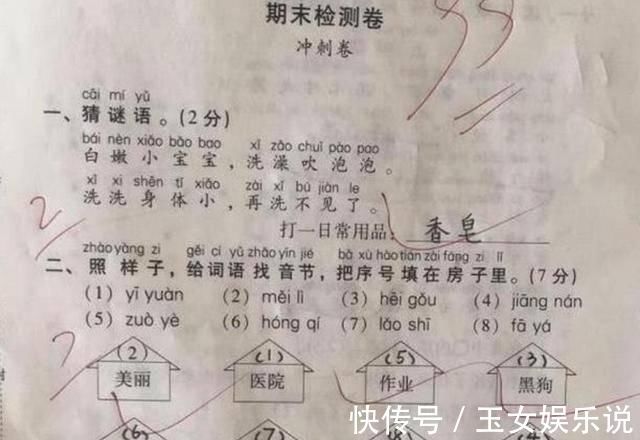 期末检测卷
冲刺卷
cāi mí yǔ
一、猜谜语。(2分)
bái nèn xiǎo bǎo bao xǐ zǎo chuī pào pao
白嫩小宝宝，洗澡吹泡泡。
xǐ xi shēn tǐ xiǎo zài xǐ bú jiàn le
洗洗身体小，再洗不见了。
打一日常用品：香皂
2
zhào yàng zi gěi cí yǔ zhǎo yīn jié bǎ xù hào tián zài fáng zi lǐ
二、照样子，给词语找音节，把序号填在房子里。(7分)
(1) yī yuàn (2) měi lì (3) hēi gǒu (4) jiāng nán
(5) zuò yè (6) hóng qí (7) lǎo shī (8) fā yá
(2) (1) (5) (3)
美丽 医院 作业 黑狗
(6) (7) (8) (4)
快传号/玉女娱乐说